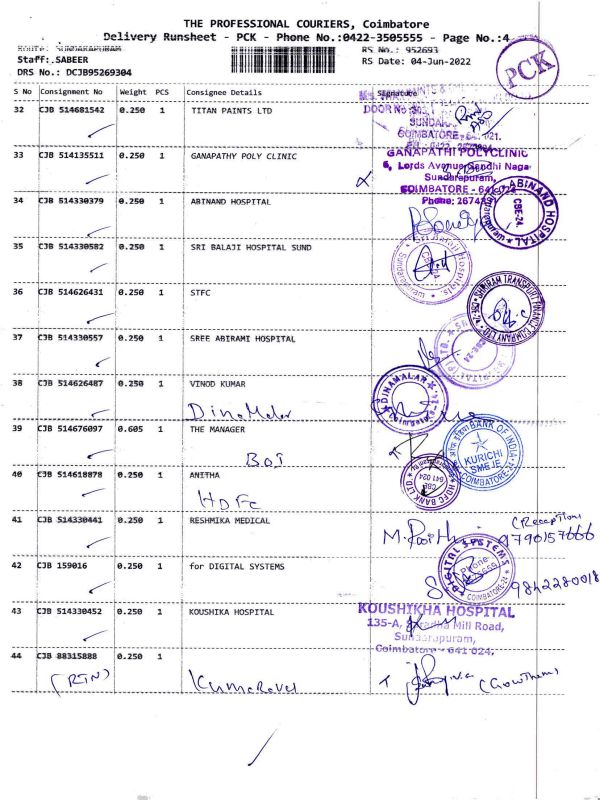 THE PROFESSIONAL COURIERS, Coimbatore
Delivery Runsheet - PCK - Phone No.:0422-3505555 - Page No.:4
Route: SUNDARAPURAM RS No.: 952693
Staff:.SABEER RS Date: 04-Jun-2022
DRS No.: DCJB95269304
PCK
S No Consignment No Weight PCS Consignee Details Signature
32 CJB 514681542 0.250 1 TITAN PAINTS LTD
DOOR No
COIMBATORE - 021.
33 CJB 514135511 0.250 1 GANAPATHY POLY CLINIC
GANAPATHI POLYCLINIC
6, Lords Avenue, Gandhi Naga
Sundarapuram,
COIMBATORE - 641 024
Phone: 2674391
34 CJB 514330379 0.250 1 ABINAND HOSPITAL
ABINAND HOSPITAL
CBE-24
35 CJB 514330582 0.250 1 SRI BALAJI HOSPITAL SUND
Sri Balaji Hospitals.
36 CJB 514626431 0.250 1 STFC
SHRIRAM TRANSPORT FINANCE COMPANY LTD. CBE-24
37 CJB 514330557 0.250 1 SREE ABIRAMI HOSPITAL
CBE-24
38 CJB 514626487 0.250 1 VINOD KUMAR
DinaMalar
DINAMALAR
Coimbatore
39 CJB 514676097 0.605 1 THE MANAGER
BOI
BANK OF INDIA
KURICHI
SME JE
COIMBATORE-24
40 CJB 514618878 0.250 1 ANITHA
HDFC
HDFC BANK LTD
CBE
641 024
41 CJB 514330441 0.250 1 RESHMIKA MEDICAL
(Reception)
9790157666
42 CJB 159016 0.250 1 for DIGITAL SYSTEMS
DIGITAL SYSTEMS
Phone
COIMBATORE-24
9842280018
43 CJB 514330452 0.250 1 KOUSHIKA HOSPITAL
KOUSHIKHA HOSPITAL
135-A, Saradha Mill Road,
Sundarapuram,
Coimbatore - 641 024,
44 CJB 88315888 0.250 1
(RTN) Kumaravel (Gowtham)